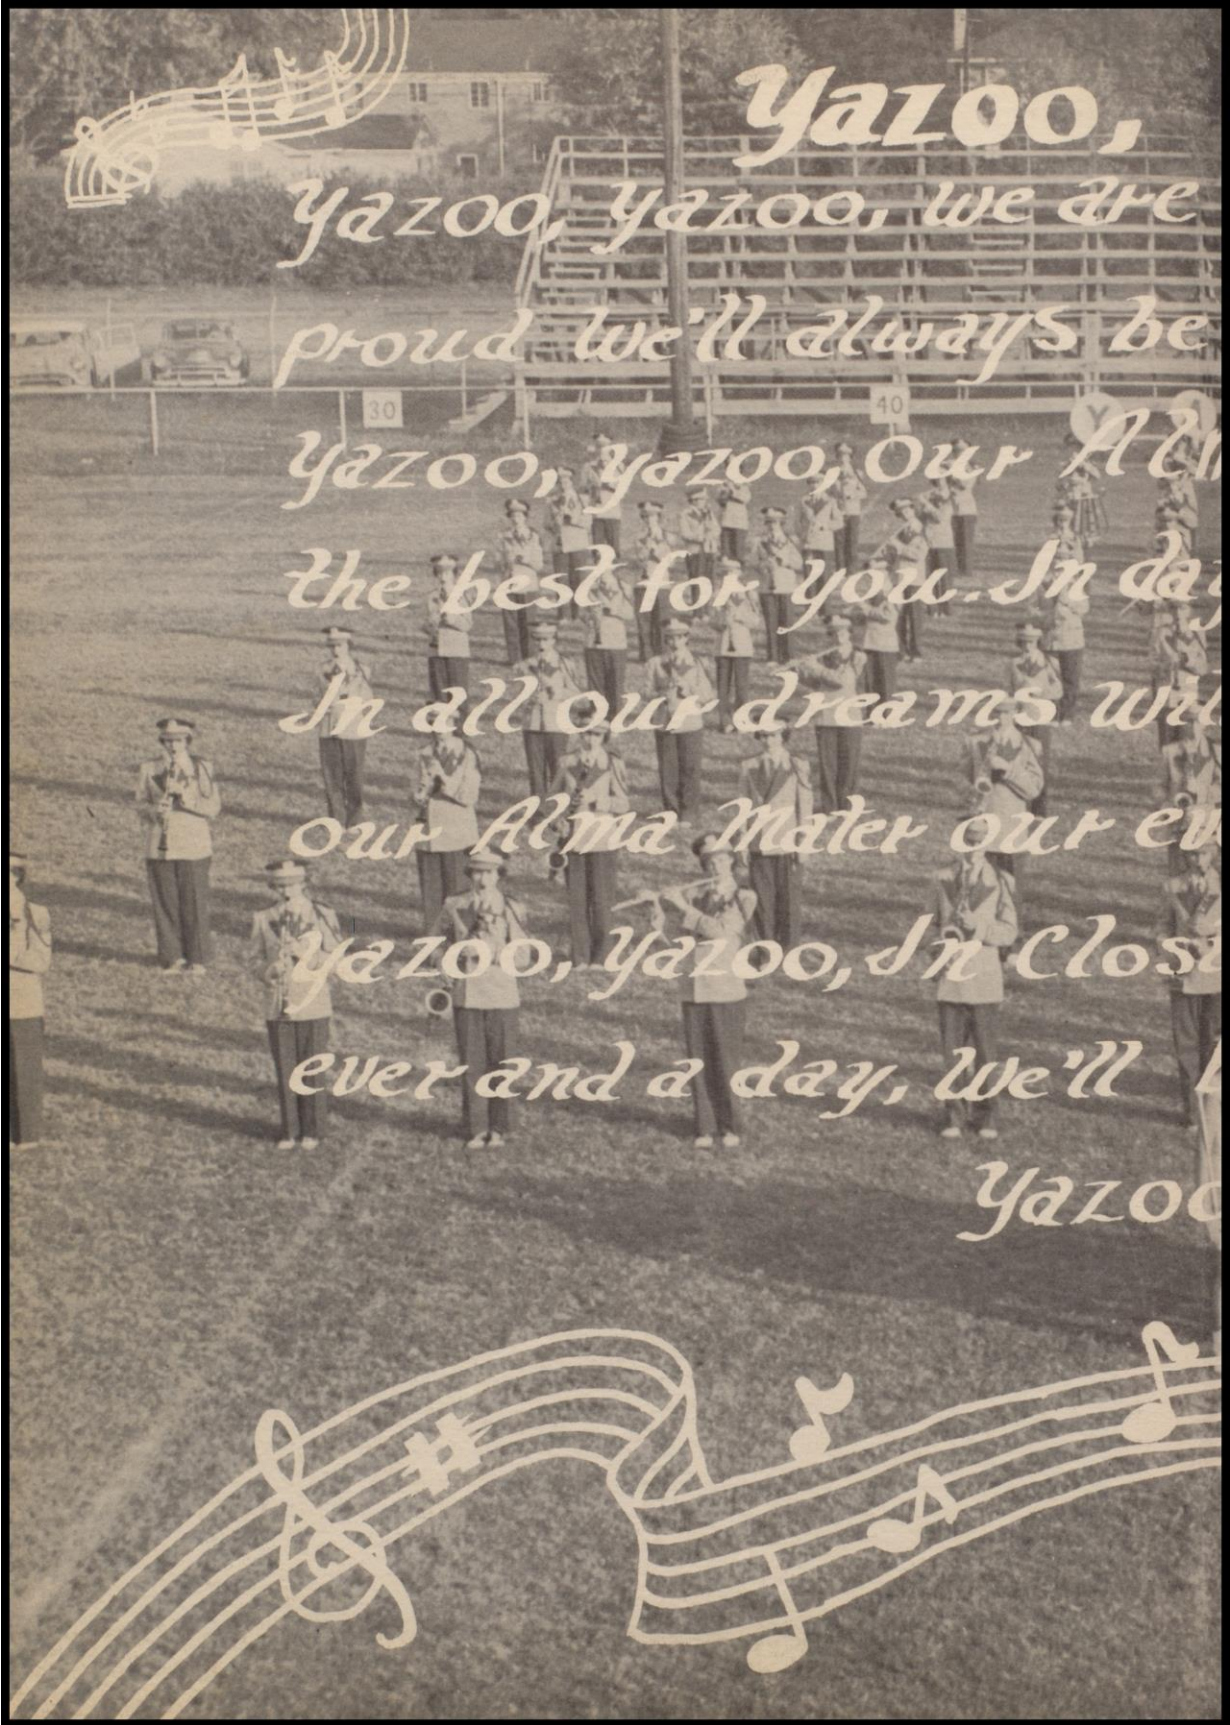 Yazoo,
Yazoo, Yazoo, we are
proud we'll always be
Yazoo, Yazoo, Our
the best for you. In
In all our dreams
our Alma Mater our
Yazoo, Yazoo, In
ever and a day, We'll
30
40
Y